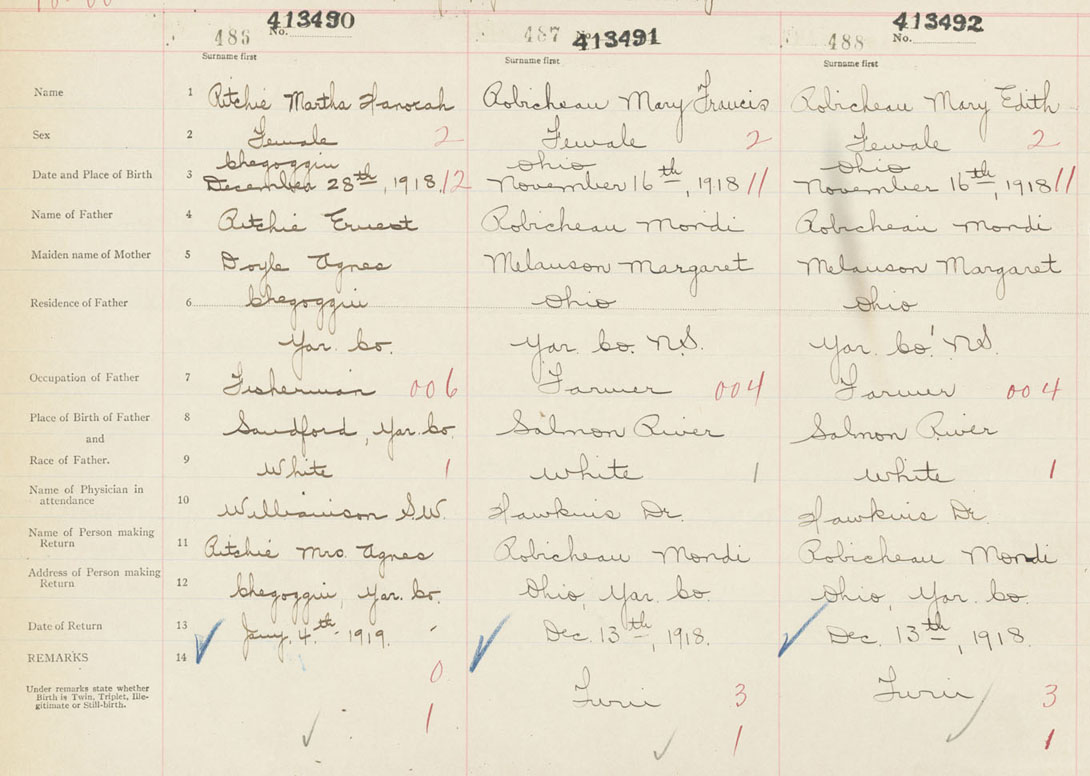 413490 413491 413492
486 No. 487 No. 488 No.
Surname first Surname first Surname first
Name 1 Ritchie Martha Hanorah Robicheau Mary Francis Robicheau Mary Edith
Sex 2 Female 2 Female 2 Female 2
Chegoggin Ohio Ohio
Date and Place of Birth 3 December 28th, 1918 /12 November 16th, 1918 11 November 16th, 1918 11
Name of Father 4 Ritchie Ernest Robicheau Mondi Robicheau Mondi
Maiden name of Mother 5 Doyle Agnes Melanson Margaret Melanson Margaret
Residence of Father 6 Chegoggin Ohio Ohio
Yar. Co. Yar. Co. N.S. Yar. Co. N.S.
Occupation of Father 7 Fisherman 006 Farmer 004 Farmer 004
Place of Birth of Father 8 Sandford, Yar. Co. Salmon River Salmon River
and
Race of Father. 9 White 1 White 1 White 1
Name of Physician in
attendance 10 Williamson S.W. Hawkins Dr. Hawkins Dr.
Name of Person making
Return 11 Ritchie Mrs. Agnes Robicheau Mondi Robicheau Mondi
Address of Person making
Return 12 Chegoggin, Yar. Co. Ohio, Yar. Co. Ohio, Yar. Co.
Date of Return 13 Jany. 4th 1919. Dec. 13th, 1918. Dec. 13th, 1918.
REMARKS 14
0
Under remarks state whether
Birth is Twin, Triplet, Ille-
gitimate or Still-birth.
Twin 3 Twin 3
1 1 1